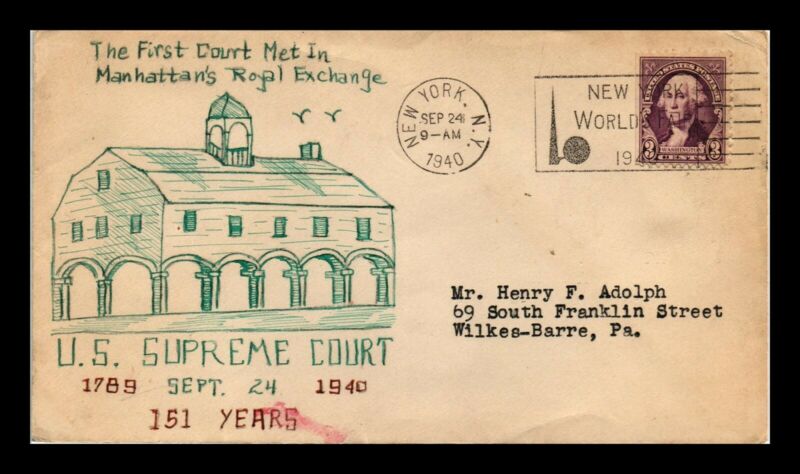 The First Court Met In
Manhattan's Royal Exchange
U.S. SUPREME COURT
1789 SEPT. 24 1940
151 YEARS
NEW YORK, N.Y.
SEP 24
9-AM
1940
NEW YORK
WORLD'S
UNITED STATES POSTAGE
WASHINGTON
3 CENTS 3
Mr. Henry F. Adolph
69 South Franklin Street
Wilkes-Barre, Pa.